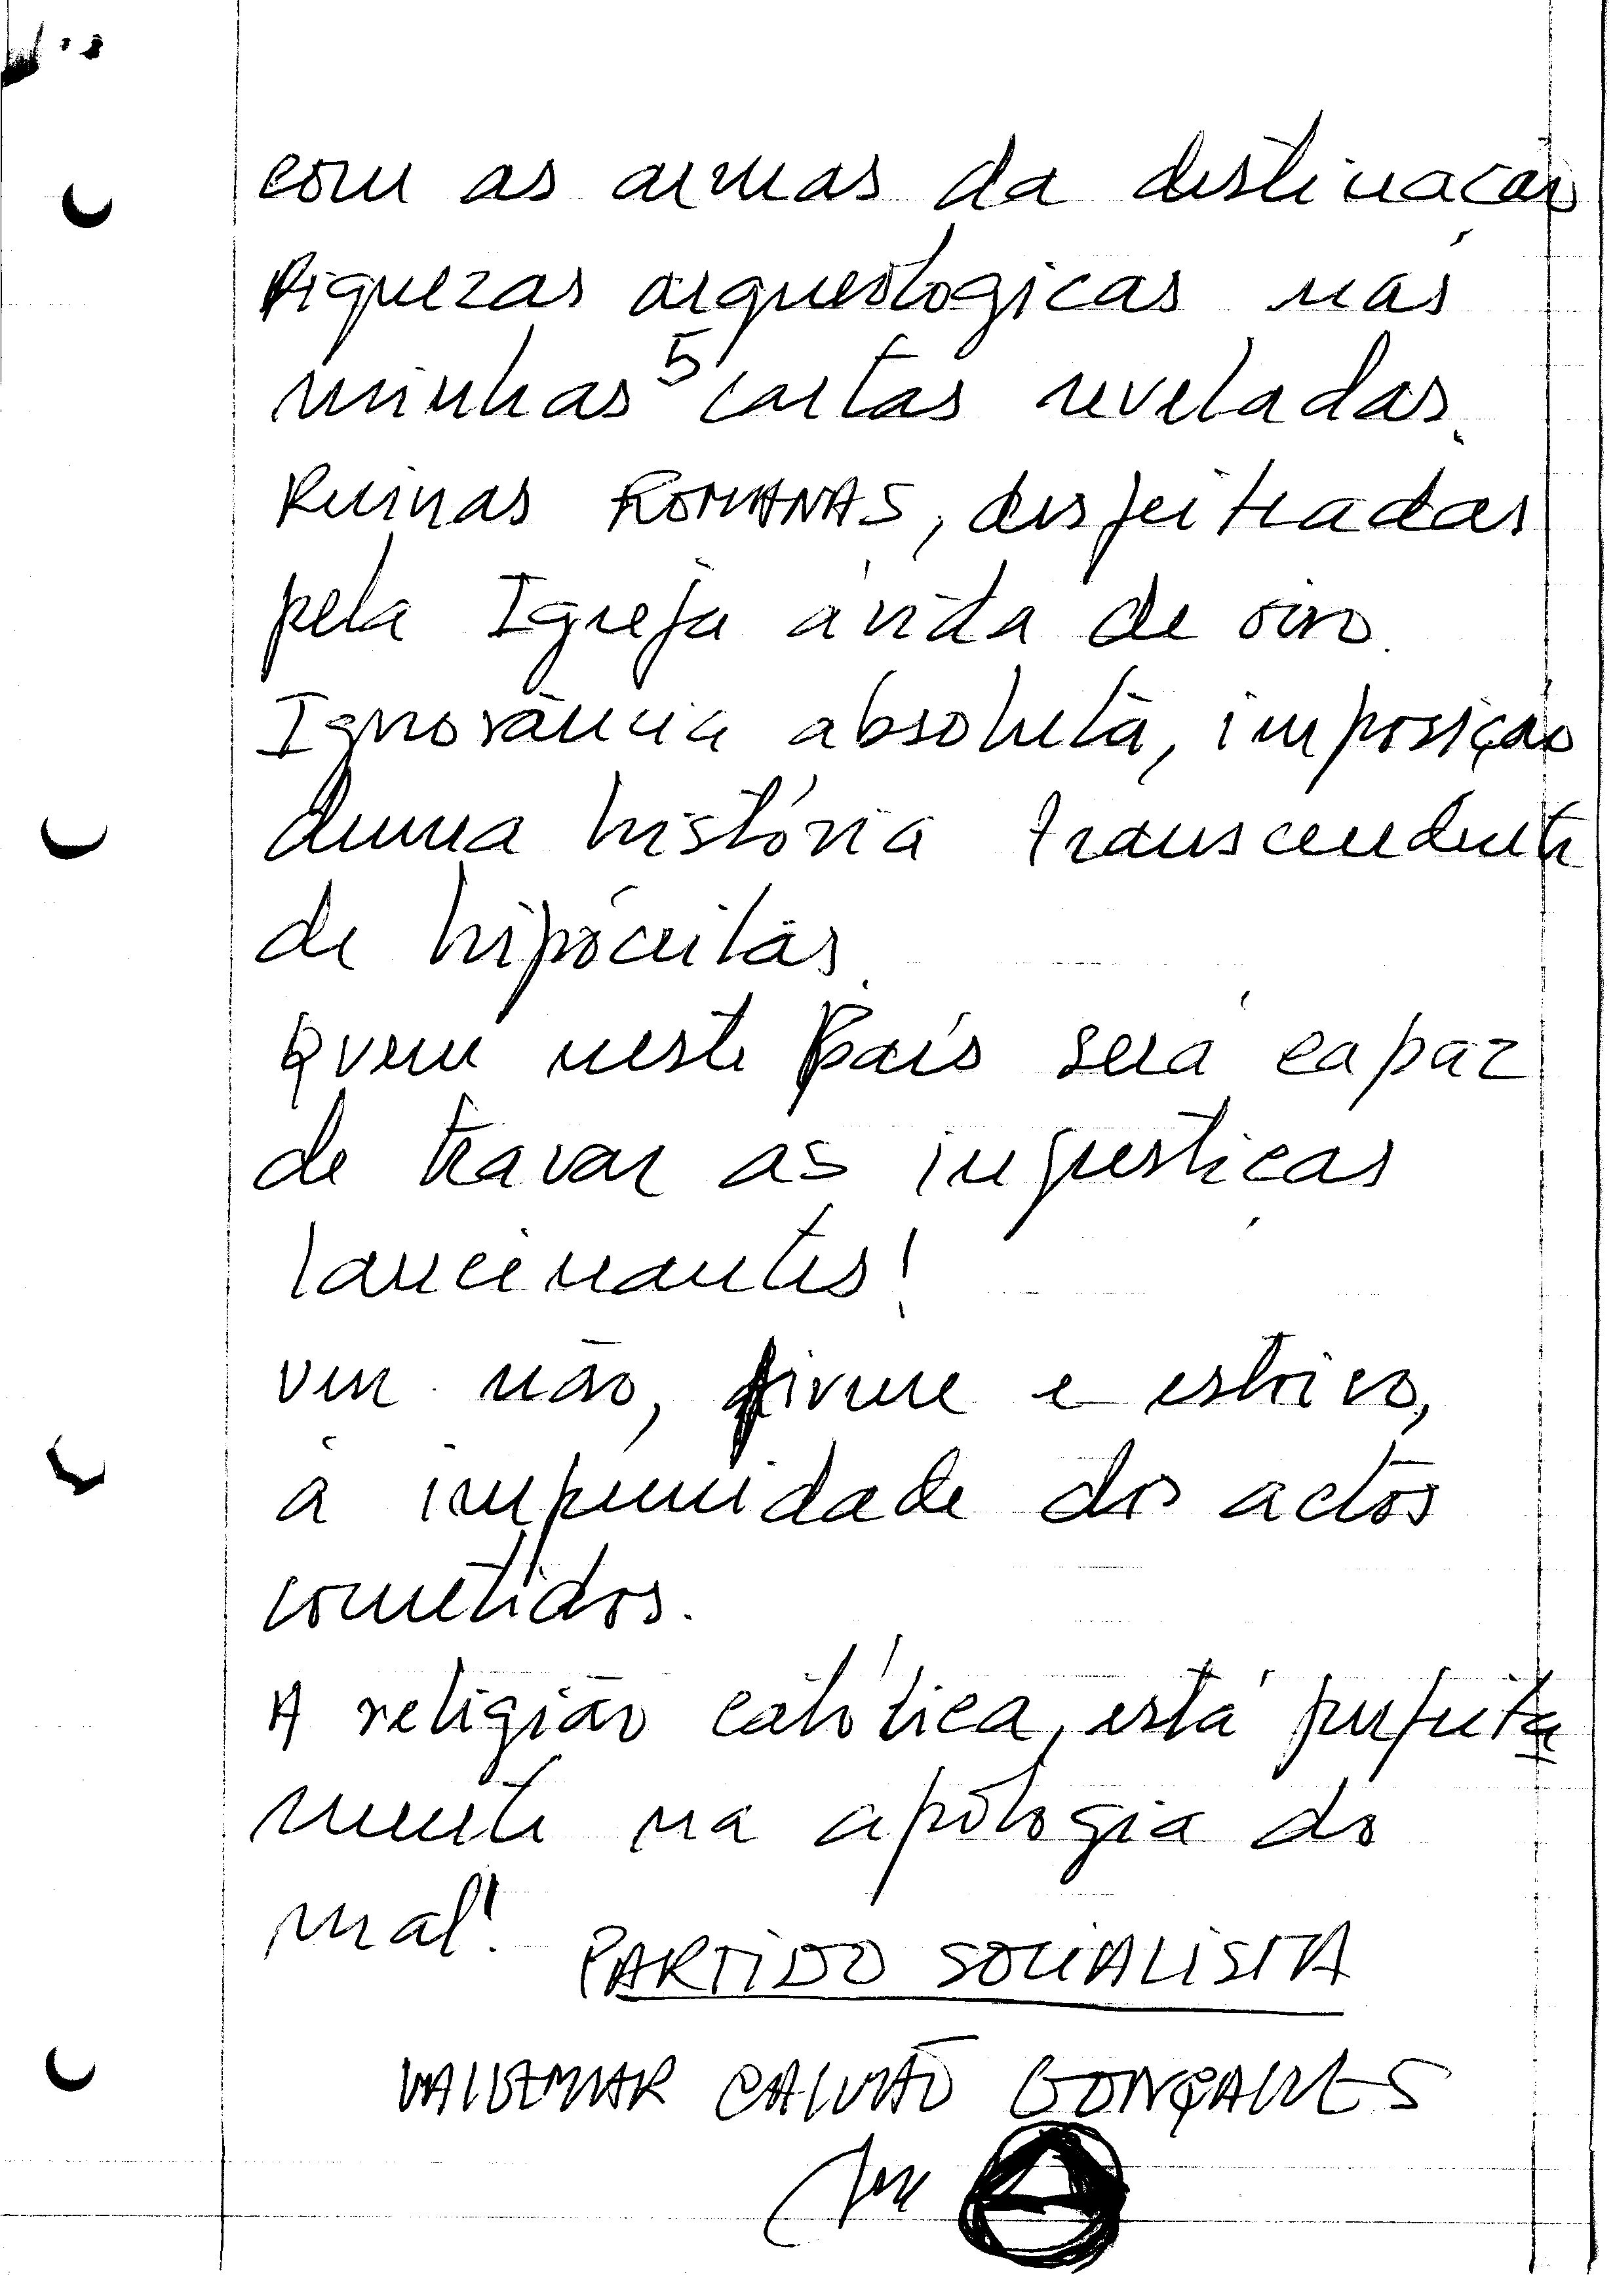 com as armas da destinação
Riquezas arqueologicas nas
minhas 5 cartas reveladas.
Ruinas ROMANAS, desfeitradas
pela Igreja ávida de oiro.
Ignorância absoluta, imposição
duma história transcendente
de hipócritas.
Quem neste País será capaz
de travar as injustiças
lancinantes!
um não, firme e estoico,
à impunidade dos actos
cometidos.
A religião católica, está perfeita
mente na apologia do
mal!
PARTIDO SOCIALISTA
VALDEMAR CALVÃO GONÇALVES